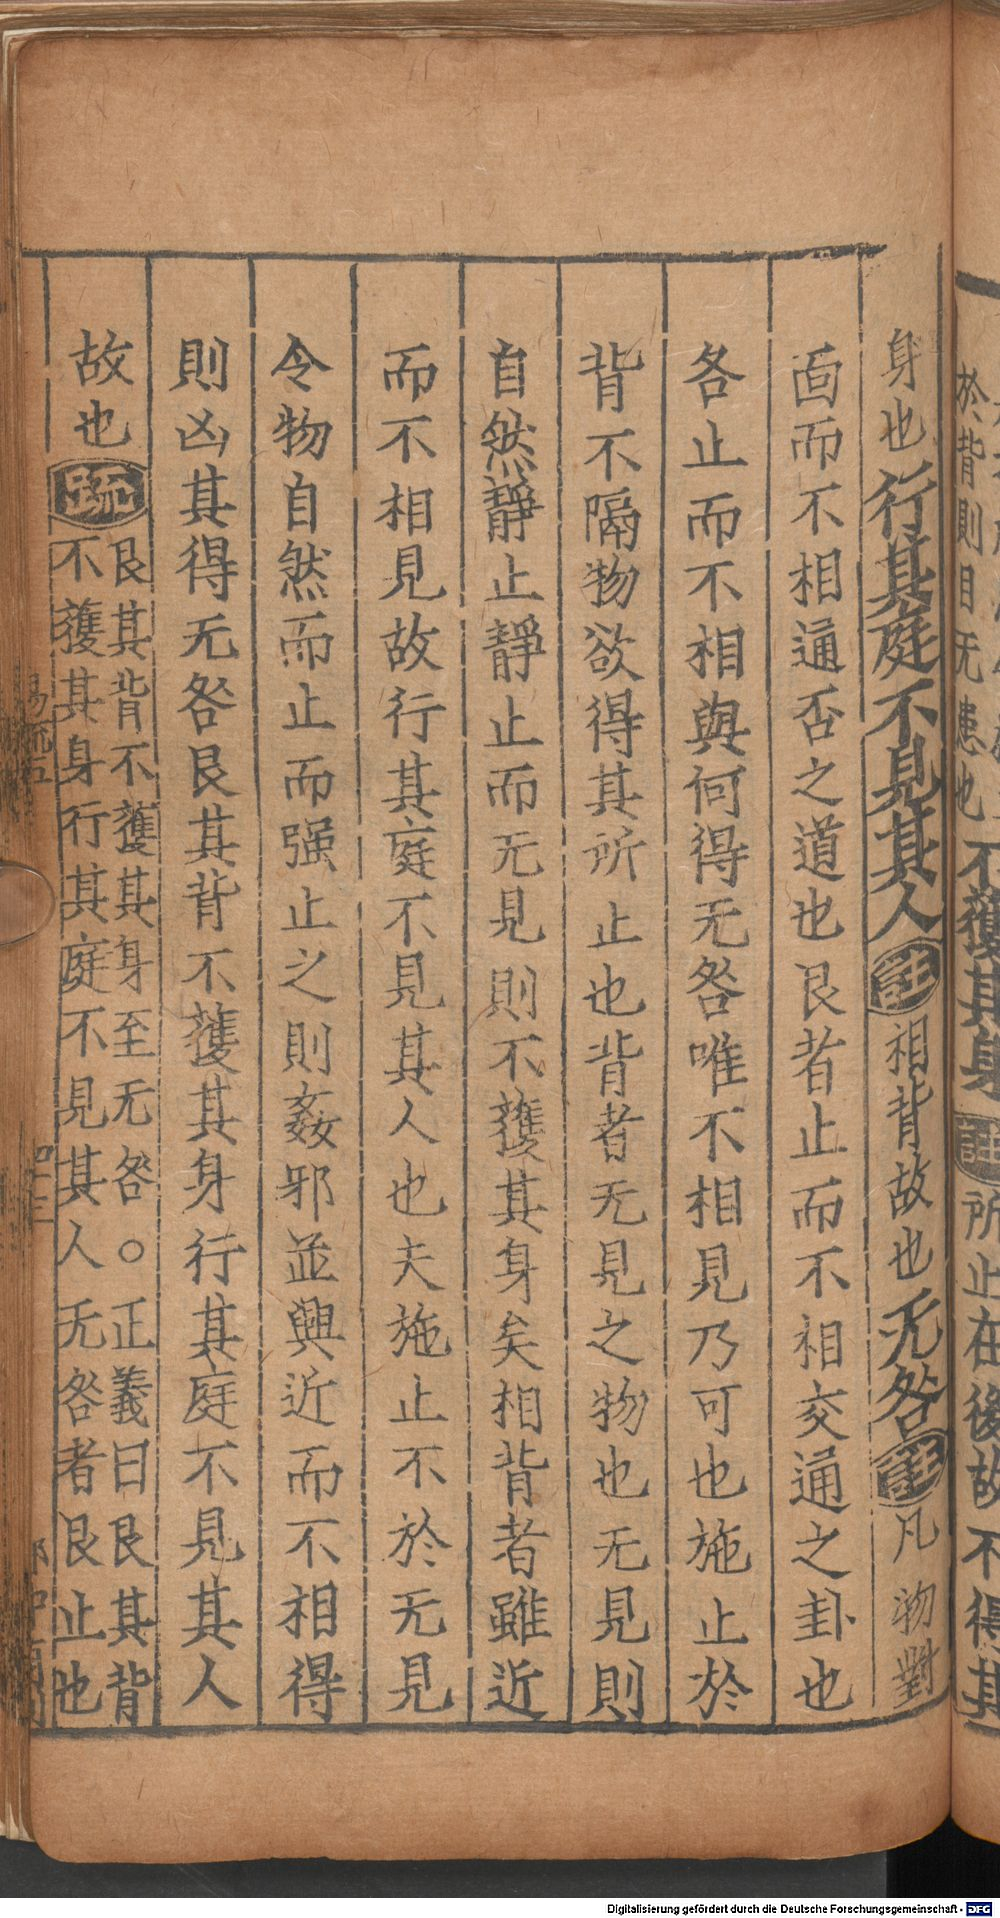 於背則目无患也不獲其身註所止在後故不得其
身也行其庭不見其人註相背故也无咎註凡物對
面而不相通否之道也艮者止而不相交通之卦也
各止而不相與何得无咎唯不相見乃可也施止於
背不隔物欲得其所止也背者无見之物也无見則
自然靜止靜止而无見則不獲其身矣相背者雖近
而不相見故行其庭不見其人也夫施止不於无見
令物自然而止而强止之則姦邪並興近而不相得
則凶其得无咎艮其背不獲其身行其庭不見其人
故也疏艮其背不獲其身至无咎○正義曰艮其背
不獲其身行其庭不見其人无咎者艮止也
易疏五
四十三
Digitalisierung gefördert durch die Deutsche Forschungsgemeinschaft - DFG